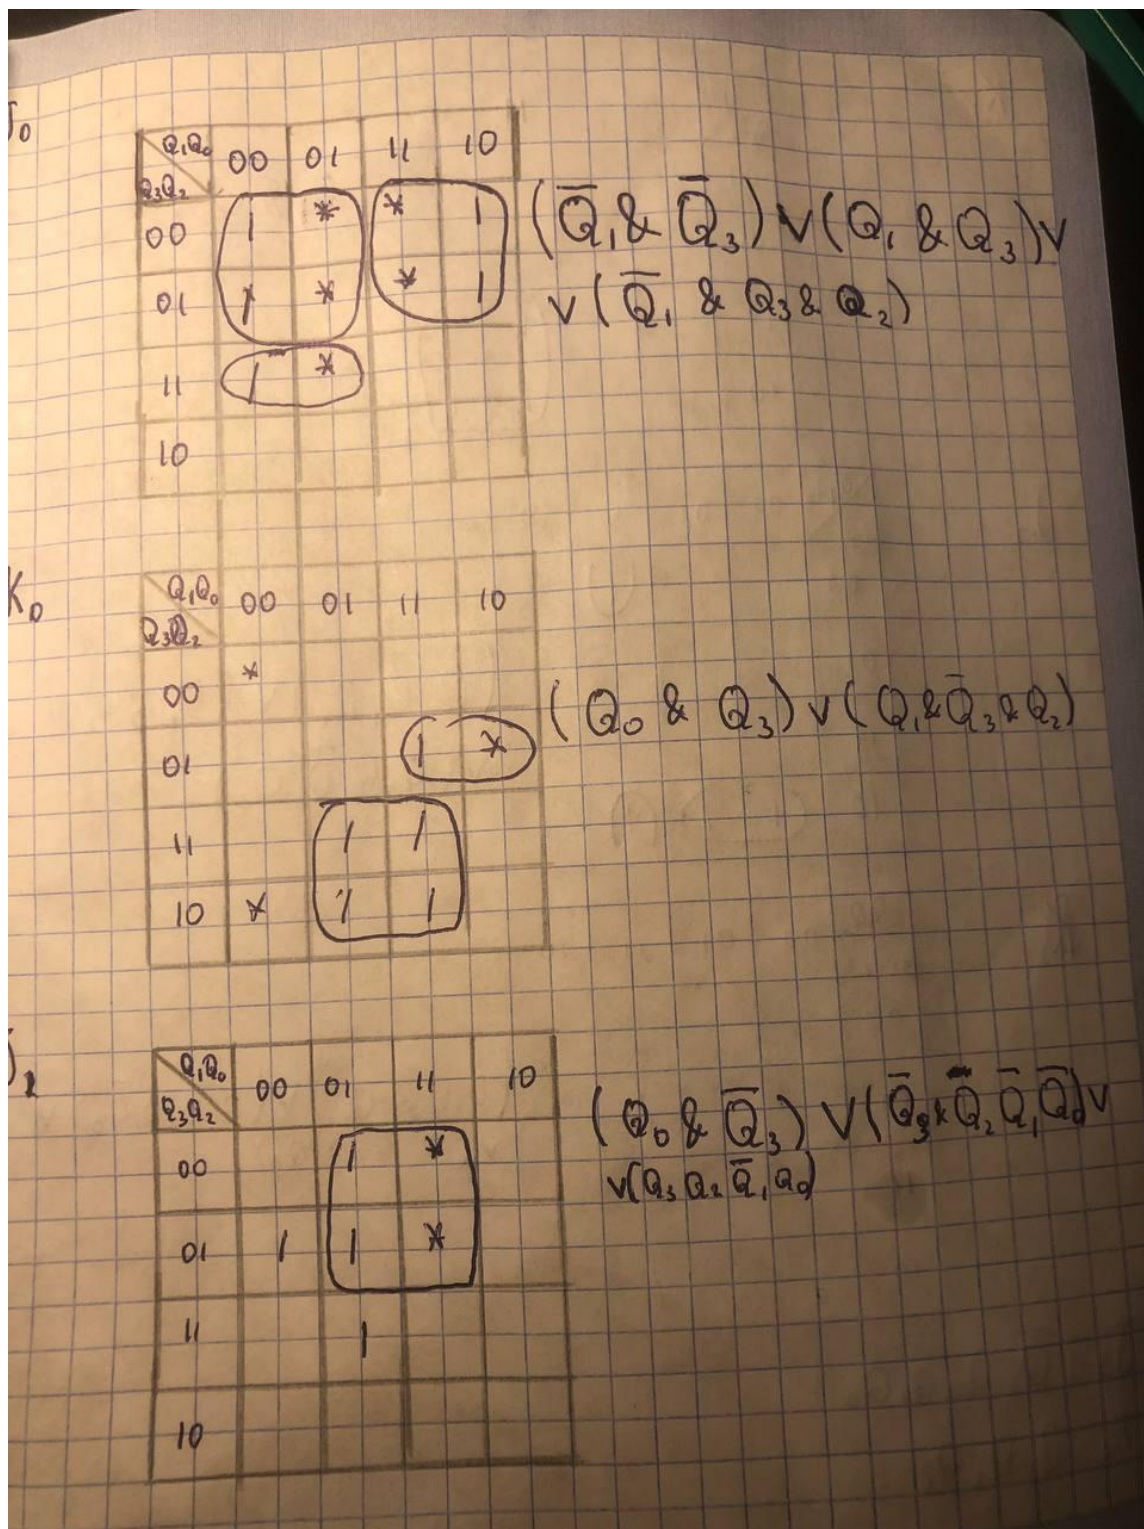 J₀
Q₁Q₀ 00 01 11 10
Q₃Q₂
00 1 * * 1
01 1 * * 1
11 1 *
10
(Q̅₁ & Q̅₃) ∨ (Q₁ & Q₃) ∨
∨ (Q̅₁ & Q₃ & Q₂)
K₀
Q₁Q₀ 00 01 11 10
Q₃Q₂
00 *
01 1 *
11 1 1
10 * 1 1
(Q₀ & Q₃) ∨ (Q₁ & Q̅₃ & Q₂)
Q₁Q₀ 00 01 11 10
Q₃Q₂
00 1 *
01 1 1 *
11 1
10
(Q₀ & Q̅₃) ∨ (Q̅₃ & Q̅₂ Q̅₁ Q̅₀) ∨
∨ (Q₃ Q₂ Q̅₁ Q₀)